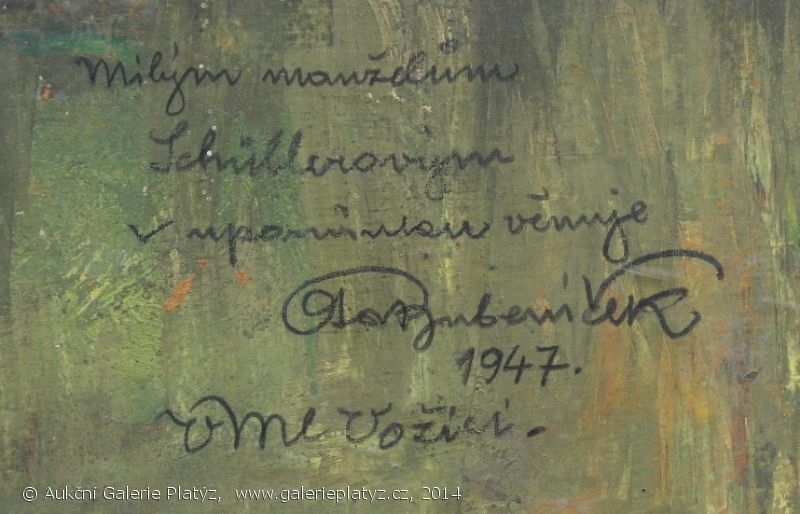 Milým manželům
Schüllerovým
v upomínkou věnuje
Ota Bubeníček
1947.
V Ml Vožici.
© Aukční Galerie Platýz, www.galerieplatyz.cz, 2014